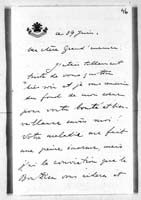 ce 29 Juin.
ma chère Grand'maman
J'étais tellement
triste de vous quitter
hier soir et je vous remercie
du fond de mon cœur
pour votre bonté et bien-
veillance envers moi!
Votre maladie me fait
une peine énorme, mais
j'ai la conviction que le
Bon Dieu vous aidera et